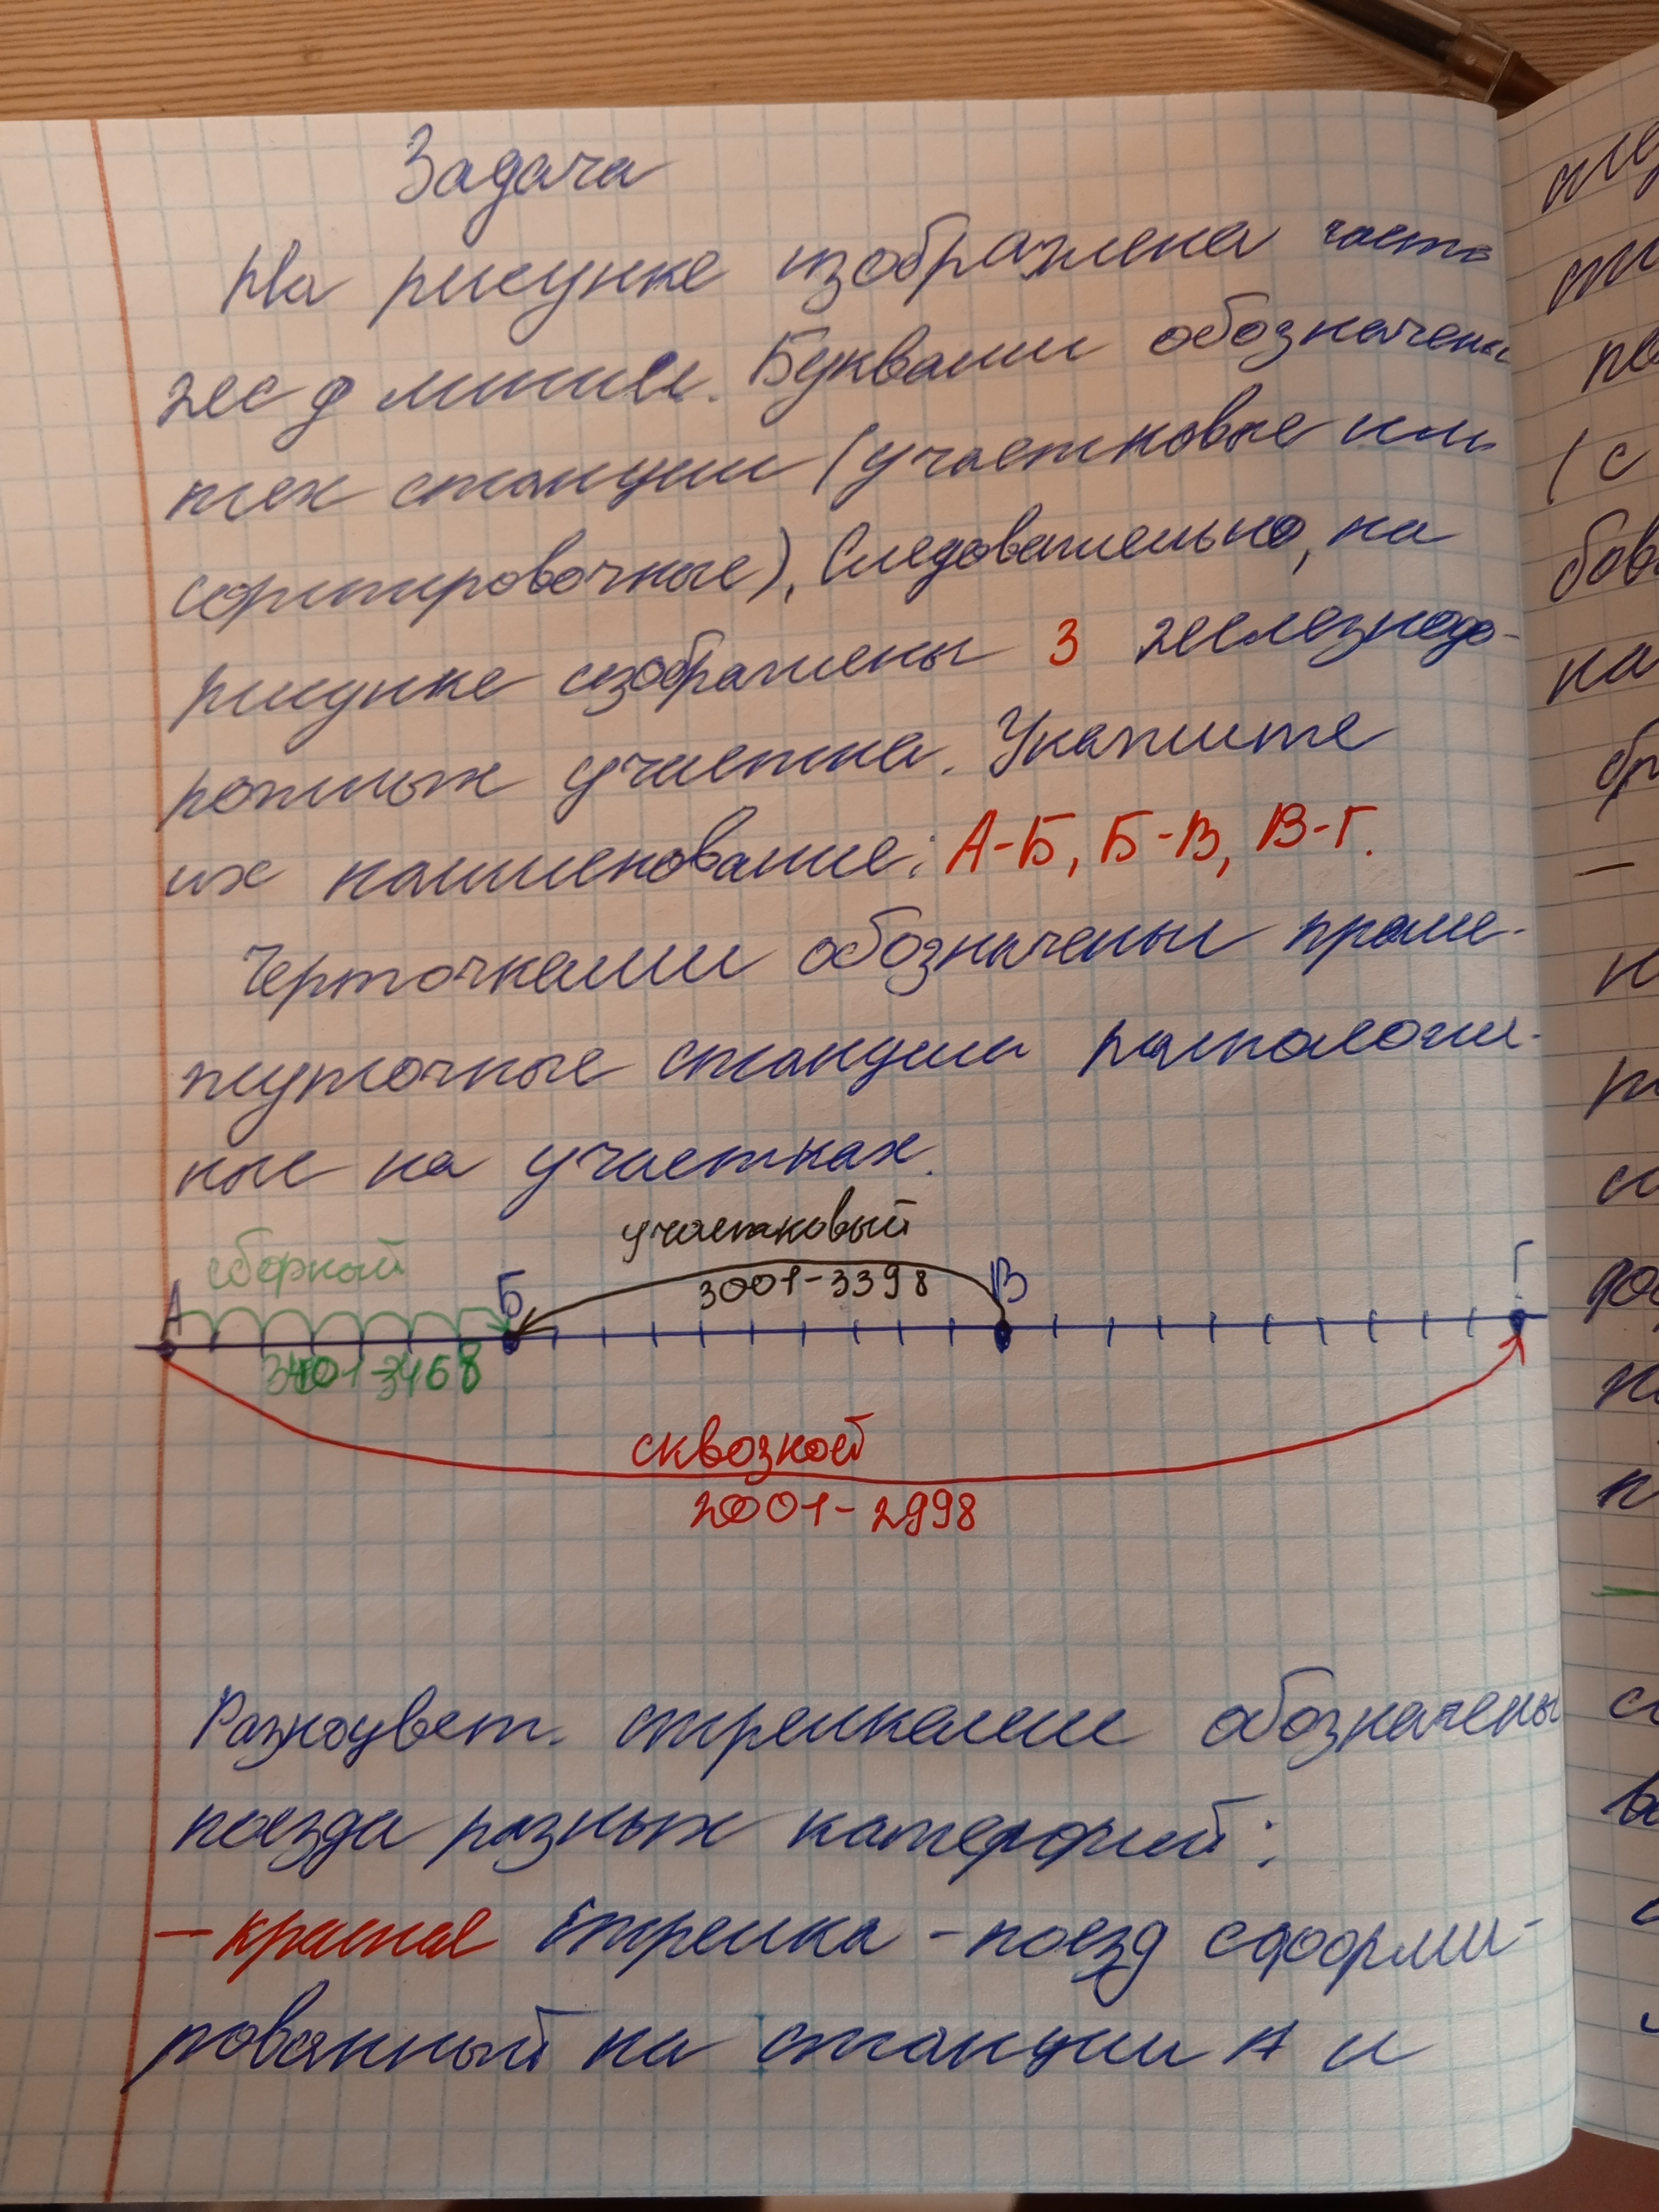 Задача
На рисунке изображена часть
жес д линии. Буквами обозначены
тех станции (участковые или
сортировочные). Следовательно, на
рисунке изображены 3 железнодо-
рожных участка. Укажите
их наименование: А-Б, Б-В, В-Г.
Черточками обозначены проме-
жуточные станции распологи-
ные на участках.
участковый
сборный
А Б 3001-3398 В Г
3401-3468
сквозной
2001-2998
Разноцвет. стрелками обозначены
поезда разных категорий:
- красная стрелка - поезд сформи-
рованный на станции А и
(с